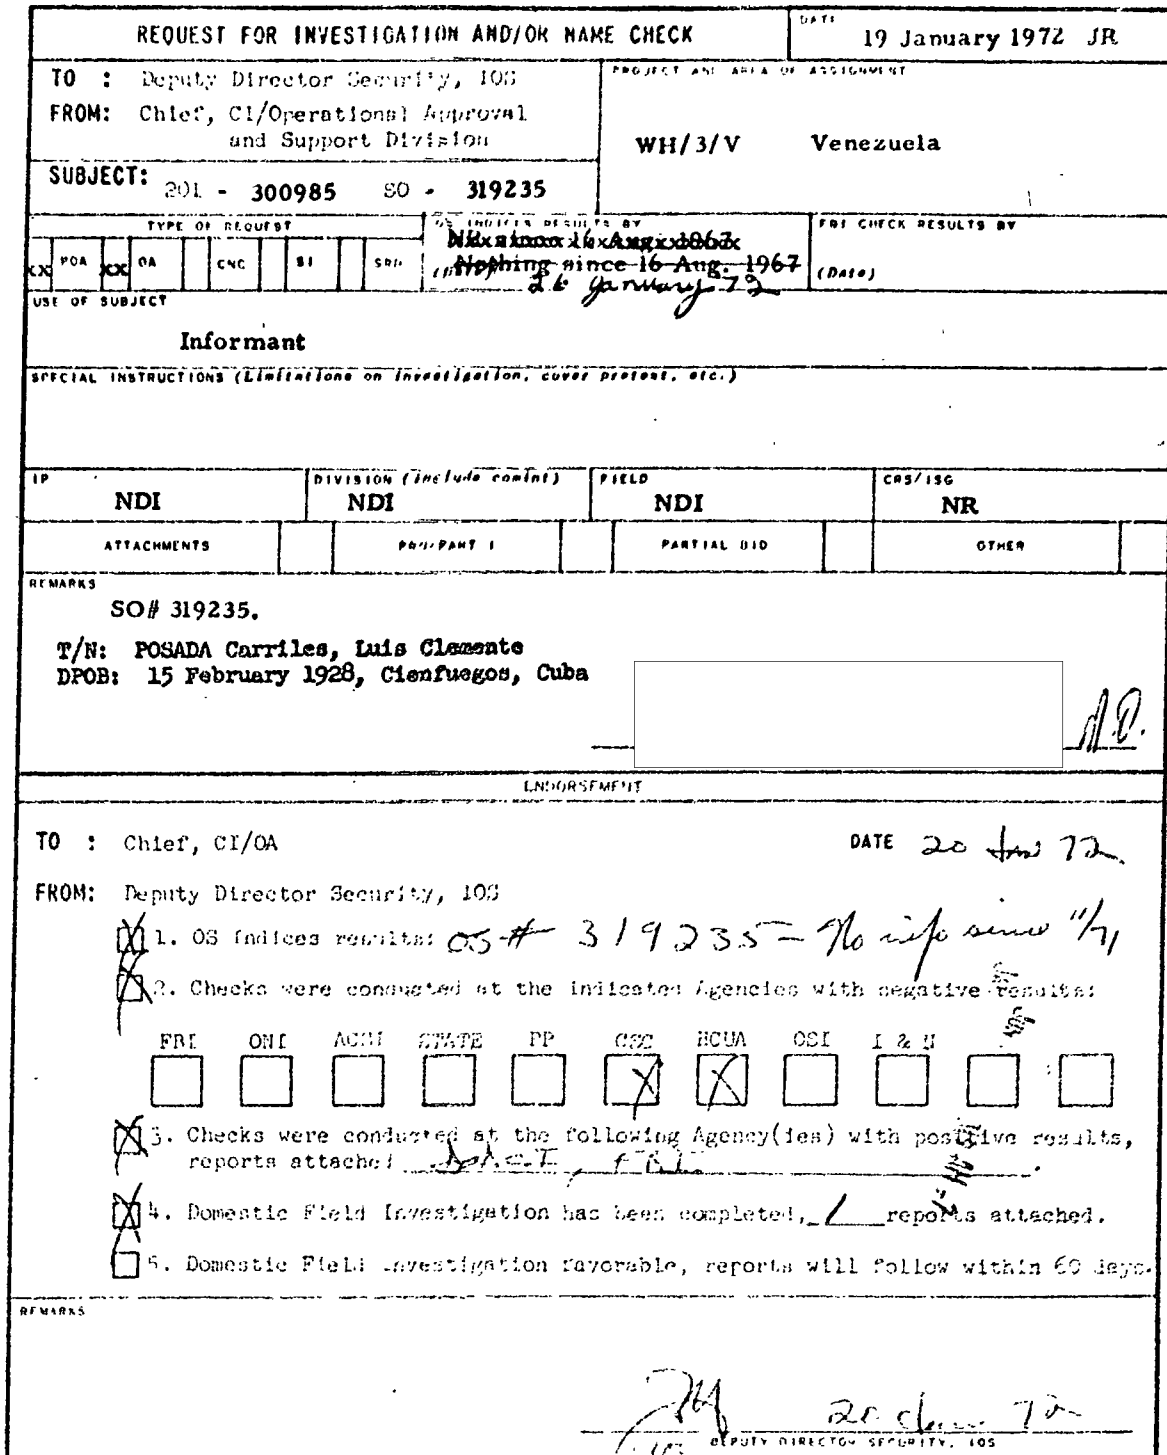 REQUEST FOR INVESTIGATION AND/OR NAME CHECK
DATE
19 January 1972 JR
TO : Deputy Director Security, IOS
FROM: Chief, CI/Operational Approval
and Support Division
PROJECT AND AREA OF ASSIGNMENT
WH/3/V Venezuela
SUBJECT: 201 - 300985 SO - 319235
TYPE OF REQUEST
xx POA xx OA CNC SI
OS INDICES RESULTS BY
Nothing since 16 Aug. 1967
26 January 72
FBI CHECK RESULTS BY
(Date)
USE OF SUBJECT
Informant
SPECIAL INSTRUCTIONS (Limitations on investigation, cover pretext, etc.)
IP
NDI
DIVISION (include comint)
NDI
FIELD
NDI
CRS/ISG
NR
ATTACHMENTS
PRQ/PART I
PARTIAL BIO
OTHER
REMARKS
SO# 319235.
T/N: POSADA Carriles, Luis Clemente
DPOB: 15 February 1928, Cienfuegos, Cuba
ENDORSEMENT
TO : Chief, CI/OA
DATE 20 Jan 72
FROM: Deputy Director Security, IOS
1. OS Indices results: OS # 319235 - No info since 11/71
2. Checks were conducted at the indicated Agencies with negative results:
FBI ONI ACSI STATE PP CSC HCUA OSI I & N
3. Checks were conducted at the following Agency(ies) with positive results,
reports attached FBI.
4. Domestic Field Investigation has been completed, 1 reports attached.
5. Domestic Field Investigation favorable, reports will follow within 60 days.
REMARKS
20 Jan 72
DEPUTY DIRECTOR SECURITY, IOS